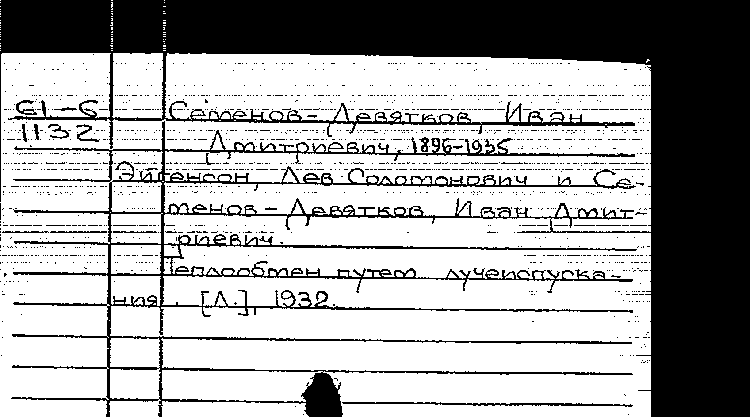 61-6 Семенов-Девятков, Иван
1132 Дмитриевич, 1896-1935
Эйгенсон, Лев Соломонович и Се-
менов-Девятков, Иван Дмит-
риевич.
Теплообмен путем лучеиспуска-
ния. [Л.], 1932.